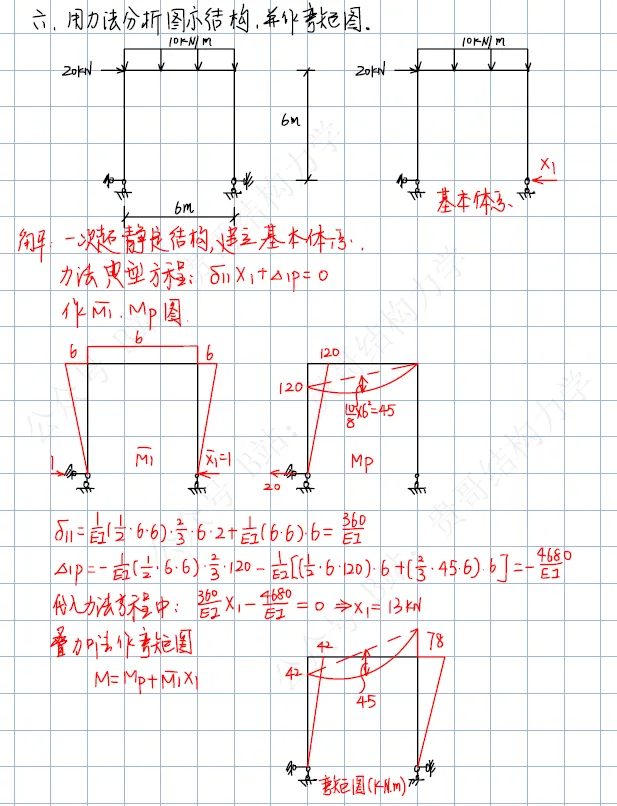 六、用力法分析图示结构,并作弯矩图。
10kN/m
20kN
6m
6m
10kN/m
20kN
X1
基本体系
解:一次超静定结构,建立基本体系.
力法典型方程:δ11X1+Δ1P=0
作M̄1、Mp图
6
6
6
1
M̄1
X̄1=1
120
120
10/8×6²=45
Mp
20
δ11=1/EI(1/2·6·6)·2/3·6·2+1/EI(6·6)·6=360/EI
Δ1P=-1/EI(1/2·6·6)·2/3·120-1/EI[(1/2·6·120)·6+(2/3·45·6)·6]=-4680/EI
代入力法方程中:360/EI X1-4680/EI=0⇒X1=13kN
叠加法作弯矩图
M=Mp+M̄1X1
42
42
78
45
弯矩图(kN.m)
公众号、B站:贵哥结构力学